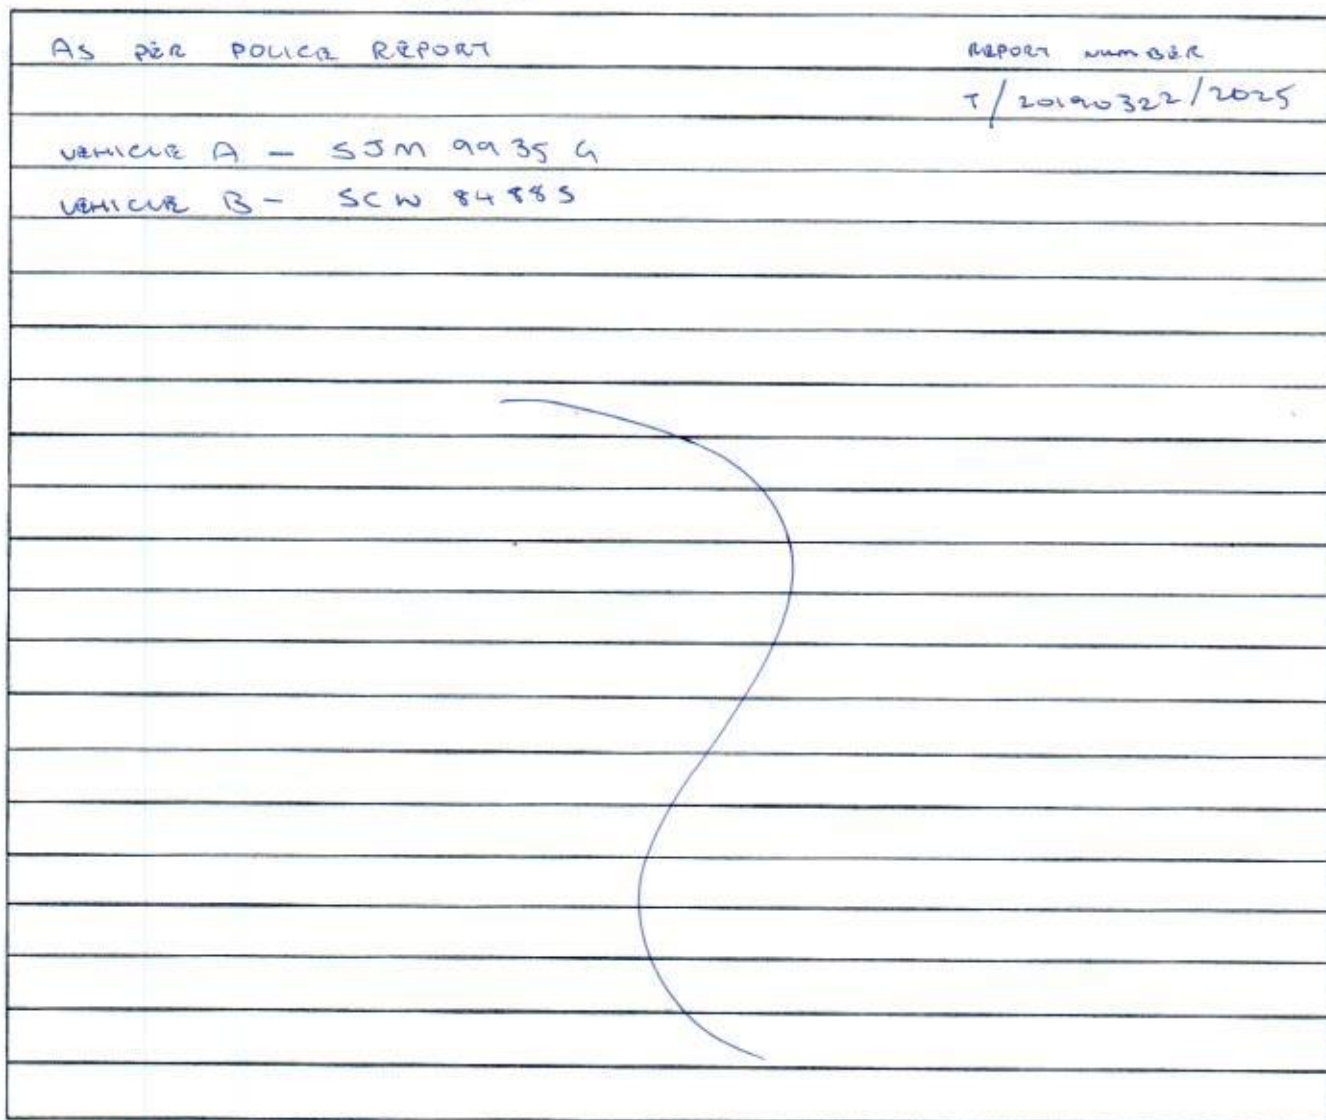 AS PER POLICE REPORT
REPORT NUMBER
T/20190322/2025
VEHICLE A - SJM 9935 G
VEHICLE B - SCW 8488S